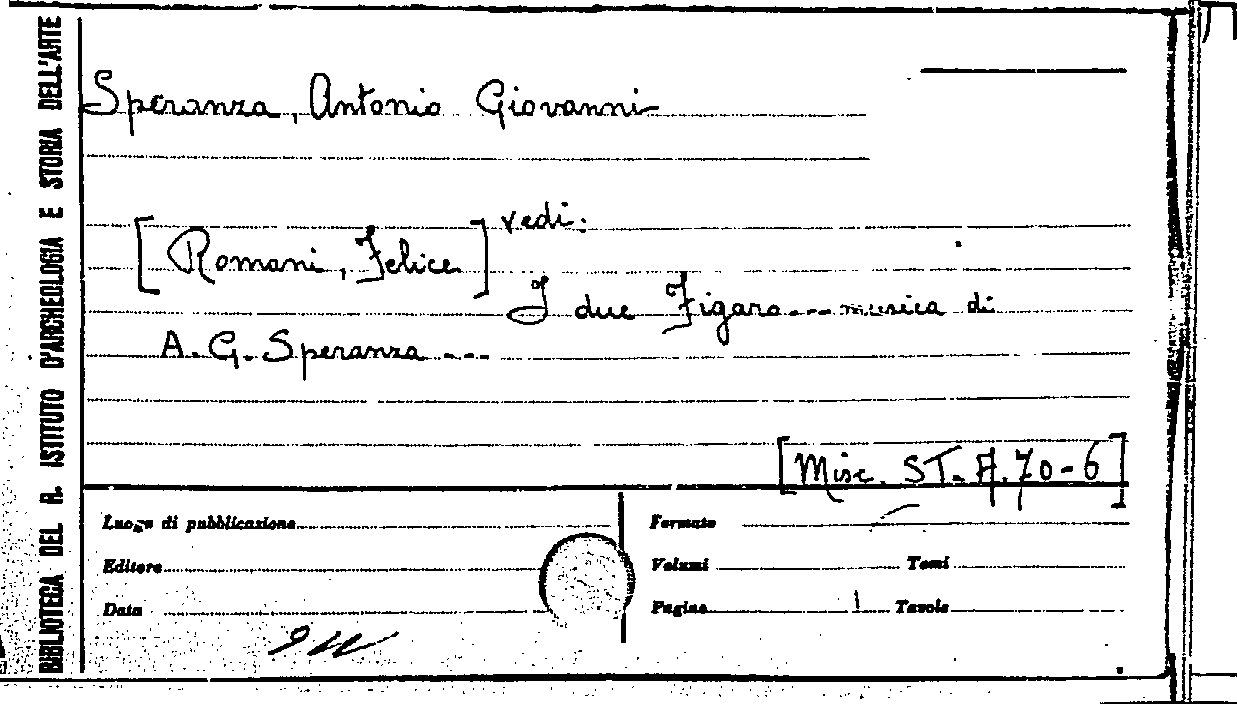 BIBLIOTECA DEL R. ISTITUTO D'ARCHEOLOGIA E STORIA DELL'ARTE
Speranza, Antonio Giovanni
vedi:
[Romani, Felice]
I due Figaro --- musica di
A. G. Speranza ---
[Misc. ST. A. 70-6]
Luogo di pubblicazione
Formato
Editore
Volumi Tomi
Data
Pagine Tavole